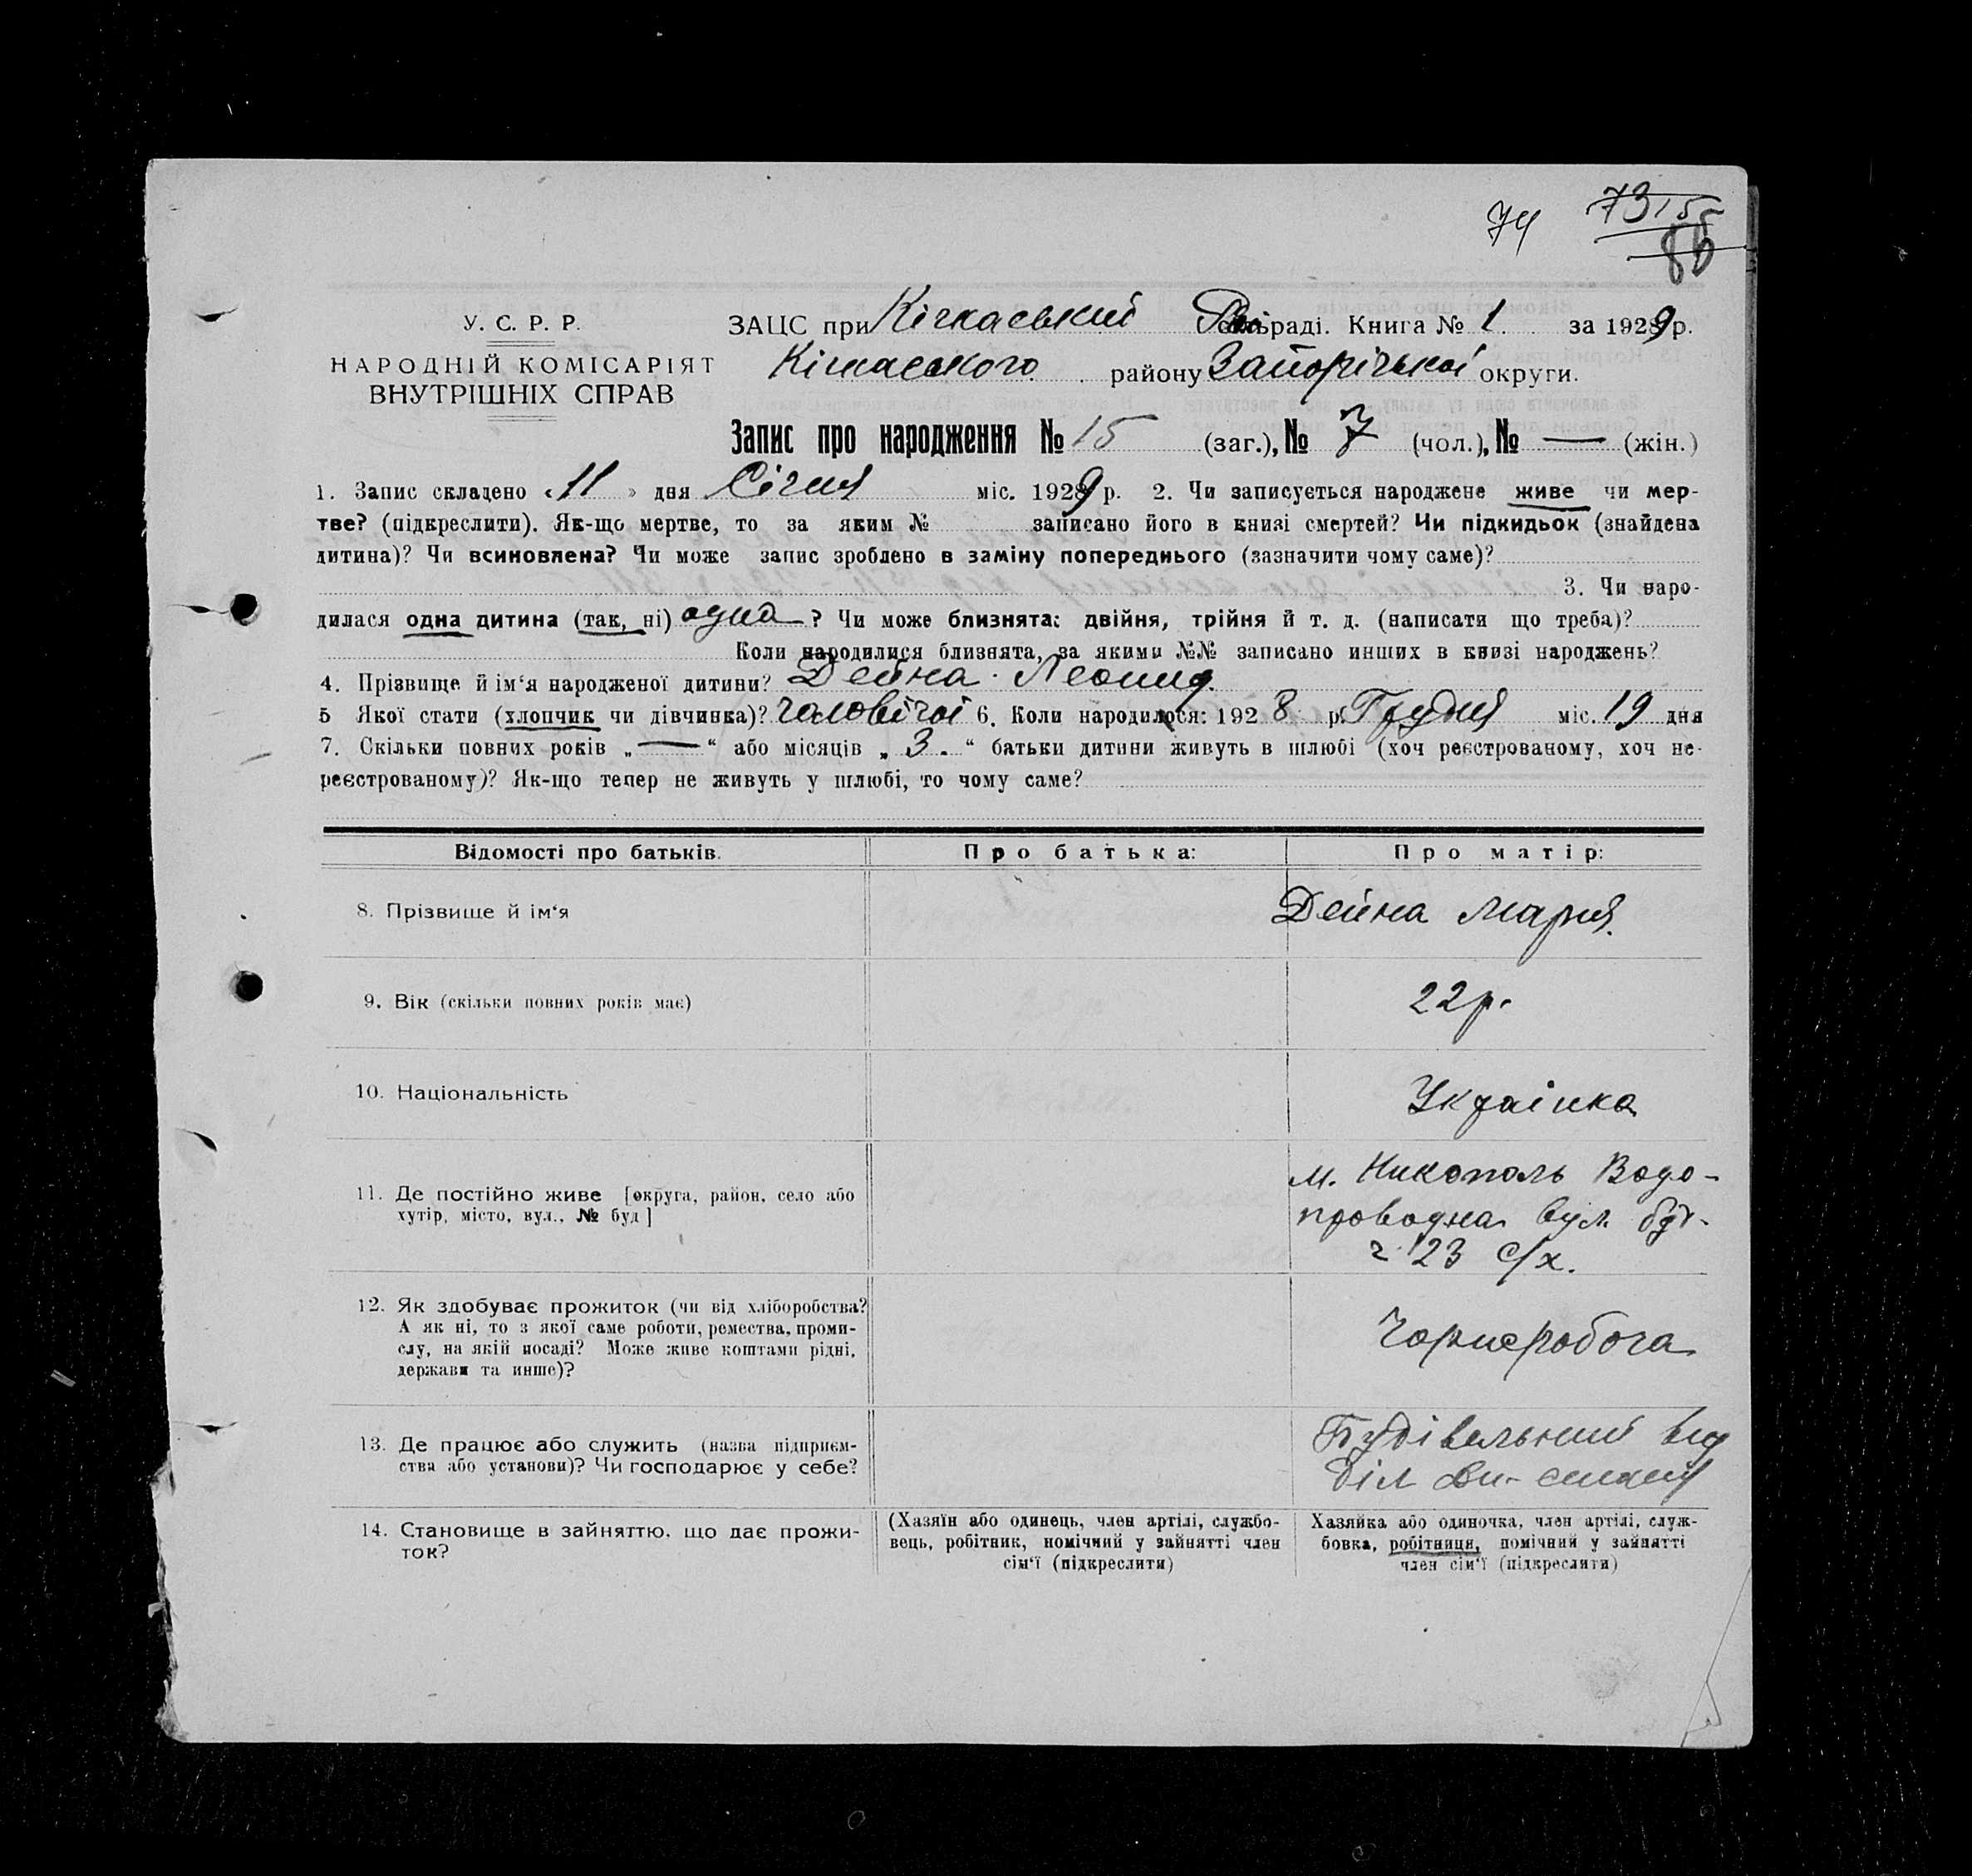 74 73 155
85
У. С. Р. Р.
НАРОДНІЙ КОМІСАРІЯТ
ВНУТРІШНІХ СПРАВ
ЗАЦС при Кічкаський раді. Книга № 1 за 1929 р.
Кічкаського району Запорізької округи.
Запис про народження № 15 (заг.), № 7 (чол.), № — (жін.)
1. Запис складено « 11 » дня Січня міс. 1929 р. 2. Чи записується народжене живе чи мер-
тве? (підкреслити). Як-що мертве, то за яким № записано його в книзі смертей? Чи підкидьок (знайдена
дитина)? Чи всиновлена? Чи може запис зроблено в заміну попереднього (зазначити чому саме)?
3. Чи наро-
дилася одна дитина (так, ні) одна ? Чи може близнята: двійня, трійня й т. д. (написати що треба)?
Коли народилися близнята, за якими №№ записано инших в книзі народжень?
4. Прізвище й ім‘я народженої дитини? Дейна Леонид.
5 Якої стати (хлопчик чи дівчинка)? чоловічої 6. Коли народилося: 1928 р. Грудня міс. 19 дня
7. Скільки повних років „ — “ або місяців „ 3. “ батьки дитини живуть в шлюбі (хоч реєстрованому, хоч не-
реєстрованому)? Як-що тепер не живуть у шлюбі, то чому саме?
Відомості про батьків. Про батька: Про матір:
8. Прізвище й ім‘я Дейна Мария.
9. Вік (скільки повних років має) 22 р.
10. Національність Українка
11. Де постійно живе [округа, район, село або
хутір, місто, вул., № буд]
м. Никополь Водо-
проводна вул. буд.
ч. 123 с/х.
12. Як здобуває прожиток (чи від хліборобства?
А як ні, то з якої саме роботи, ремества, проми-
слу, на якій посаді? Може живе коштами рідні,
держави та инше)?
Чорноробоча
13. Де працює або служить (назва підприєм-
ства або установи)? Чи господарює у себе?
Будівельний від
діл
14. Становище в зайняттю, що дає прожи-
ток?
(Хазяїн або одинець, член артілі, службо-
вець, робітник, помічний у зайнятті член
сім‘ї (підкреслити)
Хазяйка або одиночка, член артілі, служ-
бовка, робітниця, помічний у зайнятті
член сім‘ї (підкреслити)